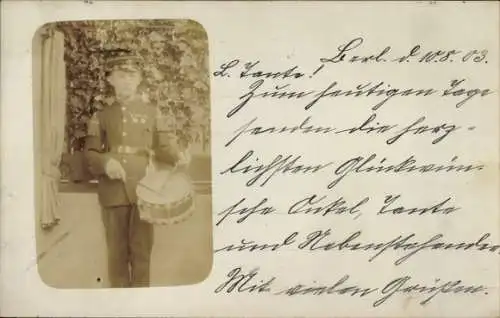 Berl. d. 10.8.03.
L. Tante!
Zum heutigen Tage
senden die herz-
lichsten Glückwün-
sche Onkel, Tante
und Nebenstehender
Mit vielen Grüßen.